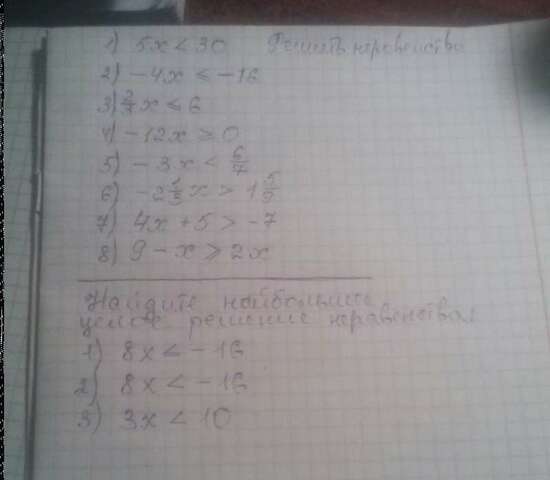 1) 5x < 30 Решить неравенства
2) -4x ≤ -16
3) 2/3 x ≤ 6
4) -12x ≥ 0
5) -3x < 6/7
6) -2 1/3 x > 1 5/9
7) 4x + 5 > -7
8) 9 - x ≥ 2x
Найдите наибольшее
целое решение неравенства:
1) 8x < -16
2) 8x < -16
3) 3x < 10